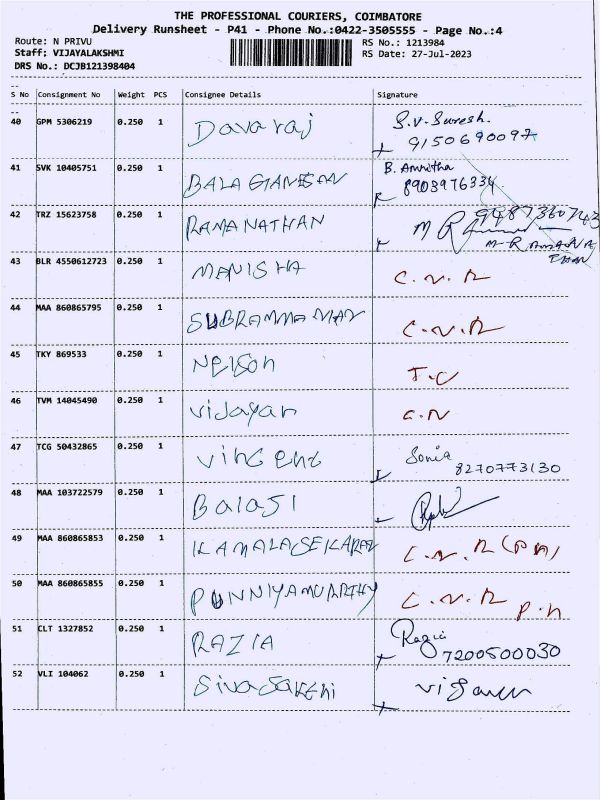 THE PROFESSIONAL COURIERS, COIMBATORE
Delivery Runsheet - P41 - Phone No.:0422-3505555 - Page No.:4
Route: N PRIVU RS No.: 1213984
Staff: VIJAYALAKSHMI RS Date: 27-Jul-2023
DRS No.: DCJB121398404
S No Consignment No Weight PCS Consignee Details Signature
40 GPM 5306219 0.250 1 Davaraj S.V. Suresh.
9150690097
41 SVK 10405751 0.250 1 BALAGANESAN B. Amritha
8903976334
42 TRZ 15623758 0.250 1 RAMANATHAN 9487360743
M R
M-RAMANA
THAN
43 BLR 4550612723 0.250 1 MANISHA C.N.R
44 MAA 860865795 0.250 1 SUBRAMMANIAN C.N.R
45 TKY 869533 0.250 1 Nelson T.C
46 TVM 14045490 0.250 1 Vijayan C.N
47 TCG 50432865 0.250 1 Vincent Sonia
8270773130
48 MAA 103722579 0.250 1 Balaji
49 MAA 860865853 0.250 1 KAMALASEKARAN C.N.R (P.N)
50 MAA 860865855 0.250 1 PUNNIYAMURTHY C.N.R P.N
51 CLT 1327852 0.250 1 RAZIA Razia
7200500030
52 VLI 104062 0.250 1 Sivasakthi